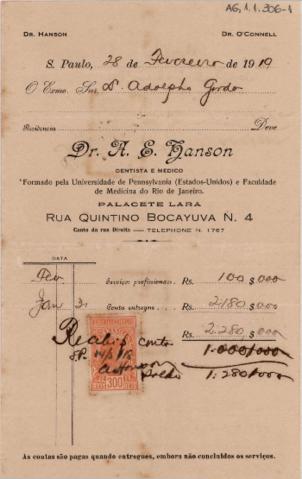 AG, 1.1.306-1
DR. HANSON DR. O'CONNELL
S. Paulo, 28 de Fevereiro de 1919
O Exmo. Snr. Dr. Adolpho Gordo
Residencia Deve
Dr. A. E. Hanson
DENTISTA E MEDICO
Formado pela Universidade de Pennsylvania (Estados-Unidos) e Faculdade
de Medicina do Rio de Janeiro.
PALACETE LARA
RUA QUINTINO BOCAYUVA N. 4
Canto da rua Direita — TELEPHONE N. 1767
DATA
Fev. Serviços profissionaes. Rs. 100 $000
Jan 31 Conta entregue, Rs. 2.180 $000
Rs. 2.280 $000
Recebi conta 1:000$000
SP.
300
A Hanson Saldo 1:280$000
As contas são pagas quando entregues, embora não concluidos os serviços.